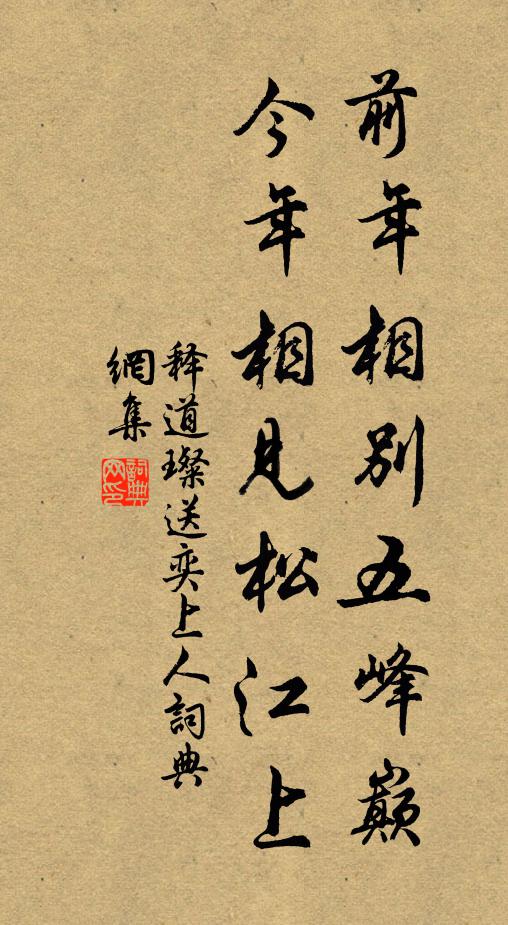 前年相别五峰巅
今年相見松江上
释道璨送奕上人詞典
網集
詞典
网印